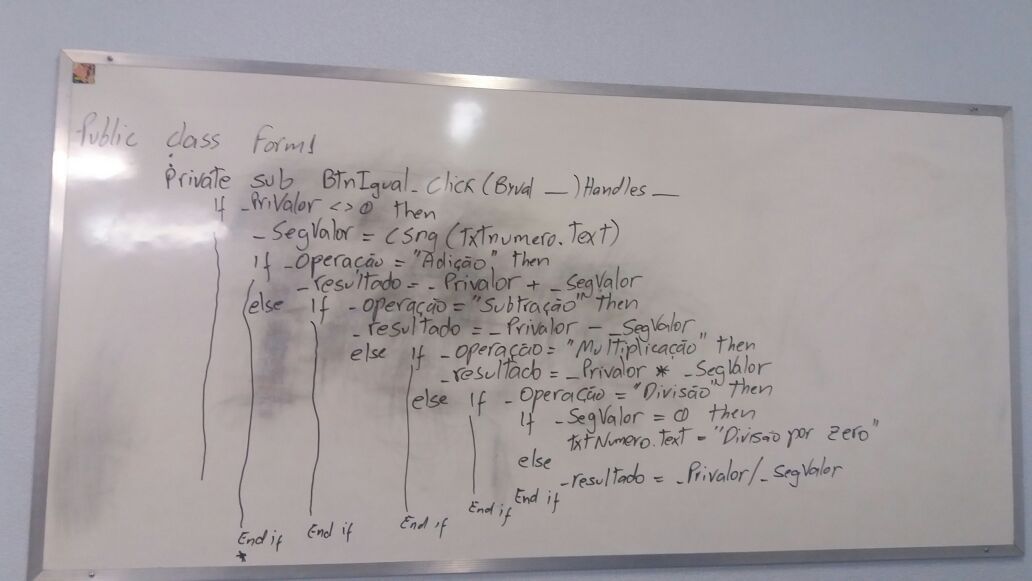 Public class Form1
Private sub BtnIgual_Click(Byval __) Handles __
If _PriValor <> 0 then
_SegValor = CSng (Txtnumero.Text)
If _Operação = "Adição" then
_resultado = _Privalor + _SegValor
else If _Operação = "Subtração" then
_resultado = _Privalor - _SegValor
else If _Operação = "Multiplicação" then
_resultado = _Privalor * _SegValor
else If _Operação = "Divisão" then
If _SegValor = 0 then
txtNumero.Text = "Divisão por zero"
else
_resultado = _Privalor/_SegValor
End if End if End if End if End if
*